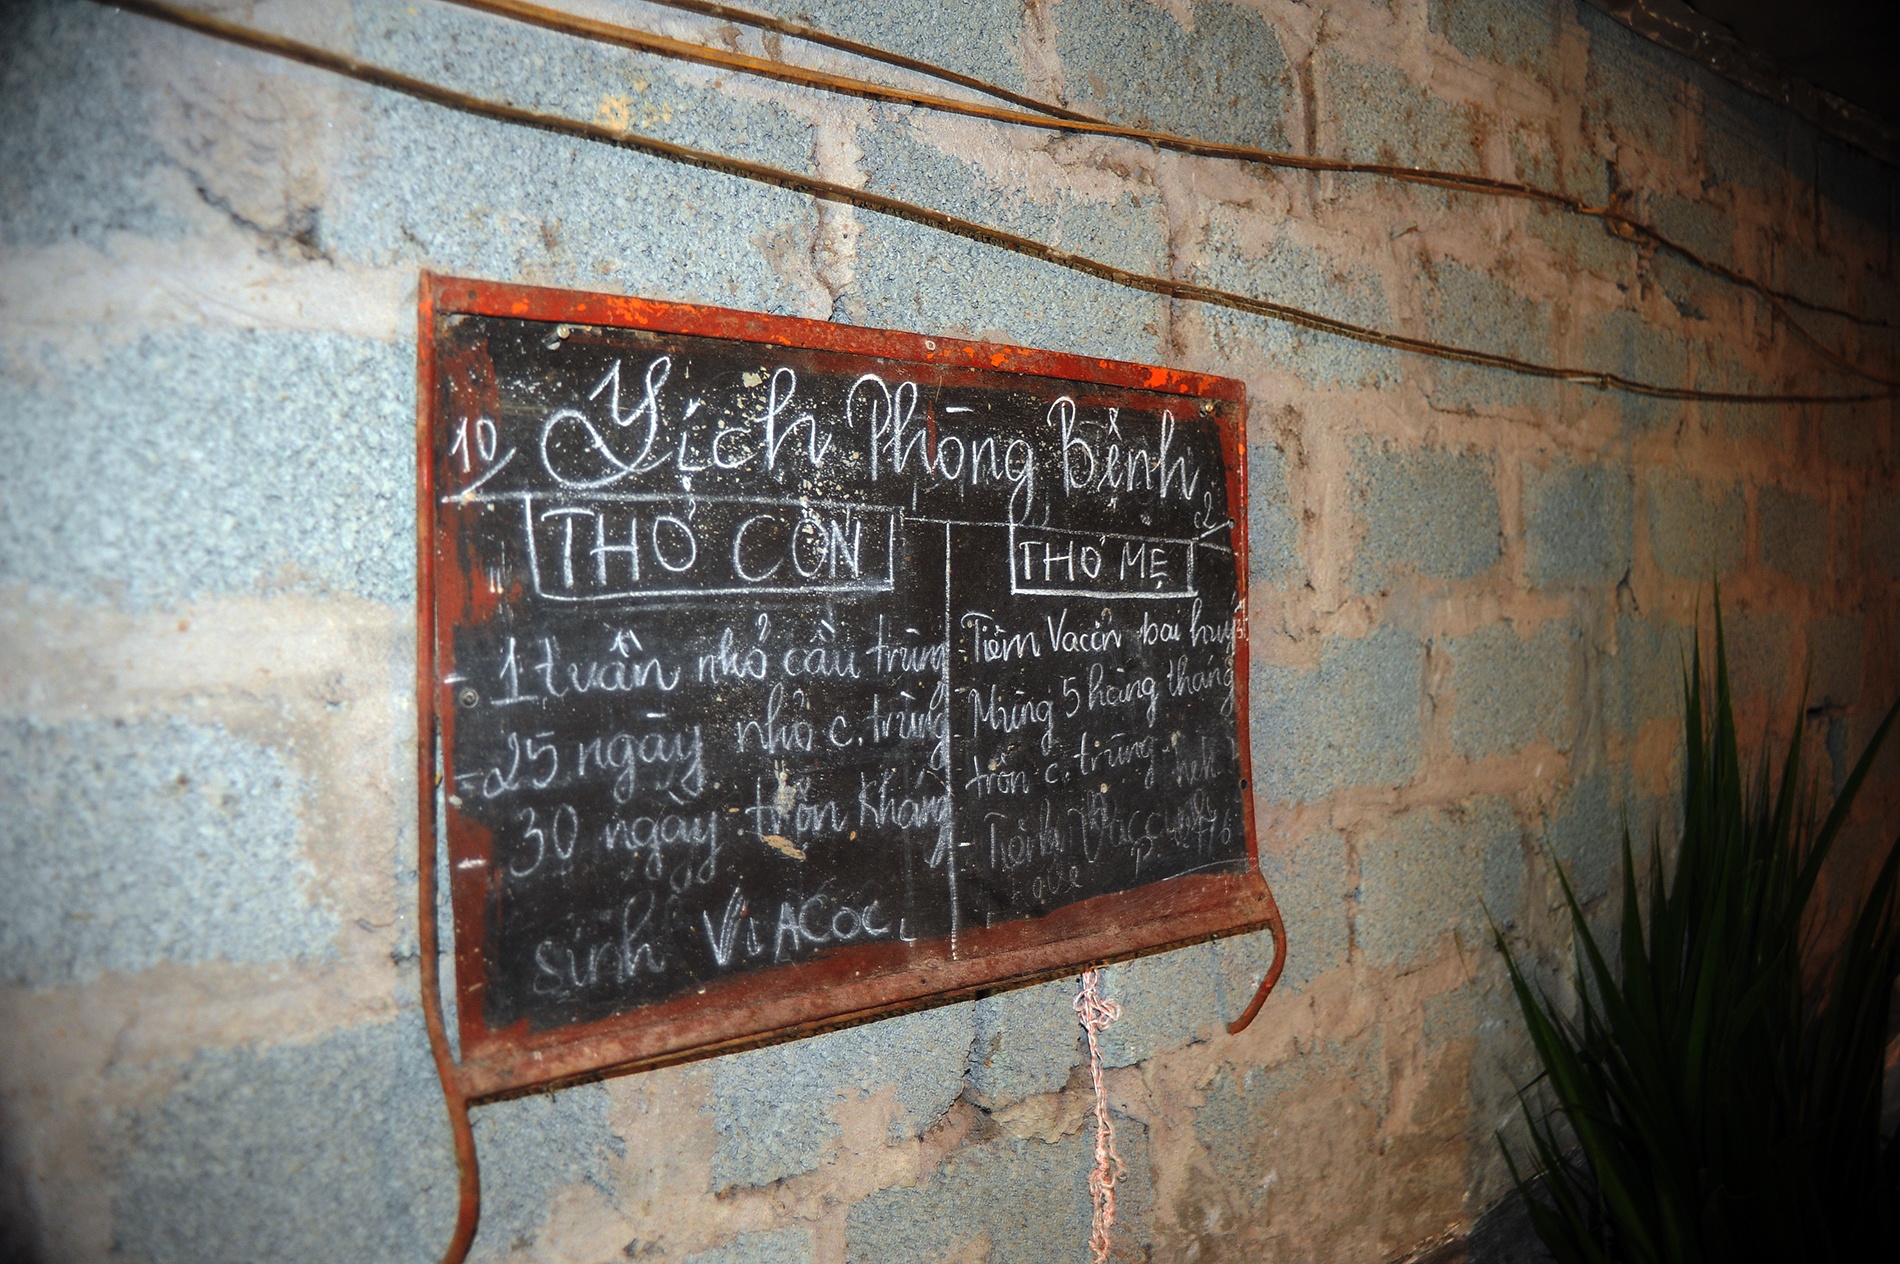 10 Lịch Phòng Bệnh 2
THỎ CON
- 1 tuần nhỏ cầu trùng
- 25 ngày nhỏ c. trùng
30 ngày trộn kháng
sinh VIACOC
THỎ MẸ
- Tiêm Vacin bại huyết
- Mùng 5 hàng tháng
trộn c. trùng
- Tiêm